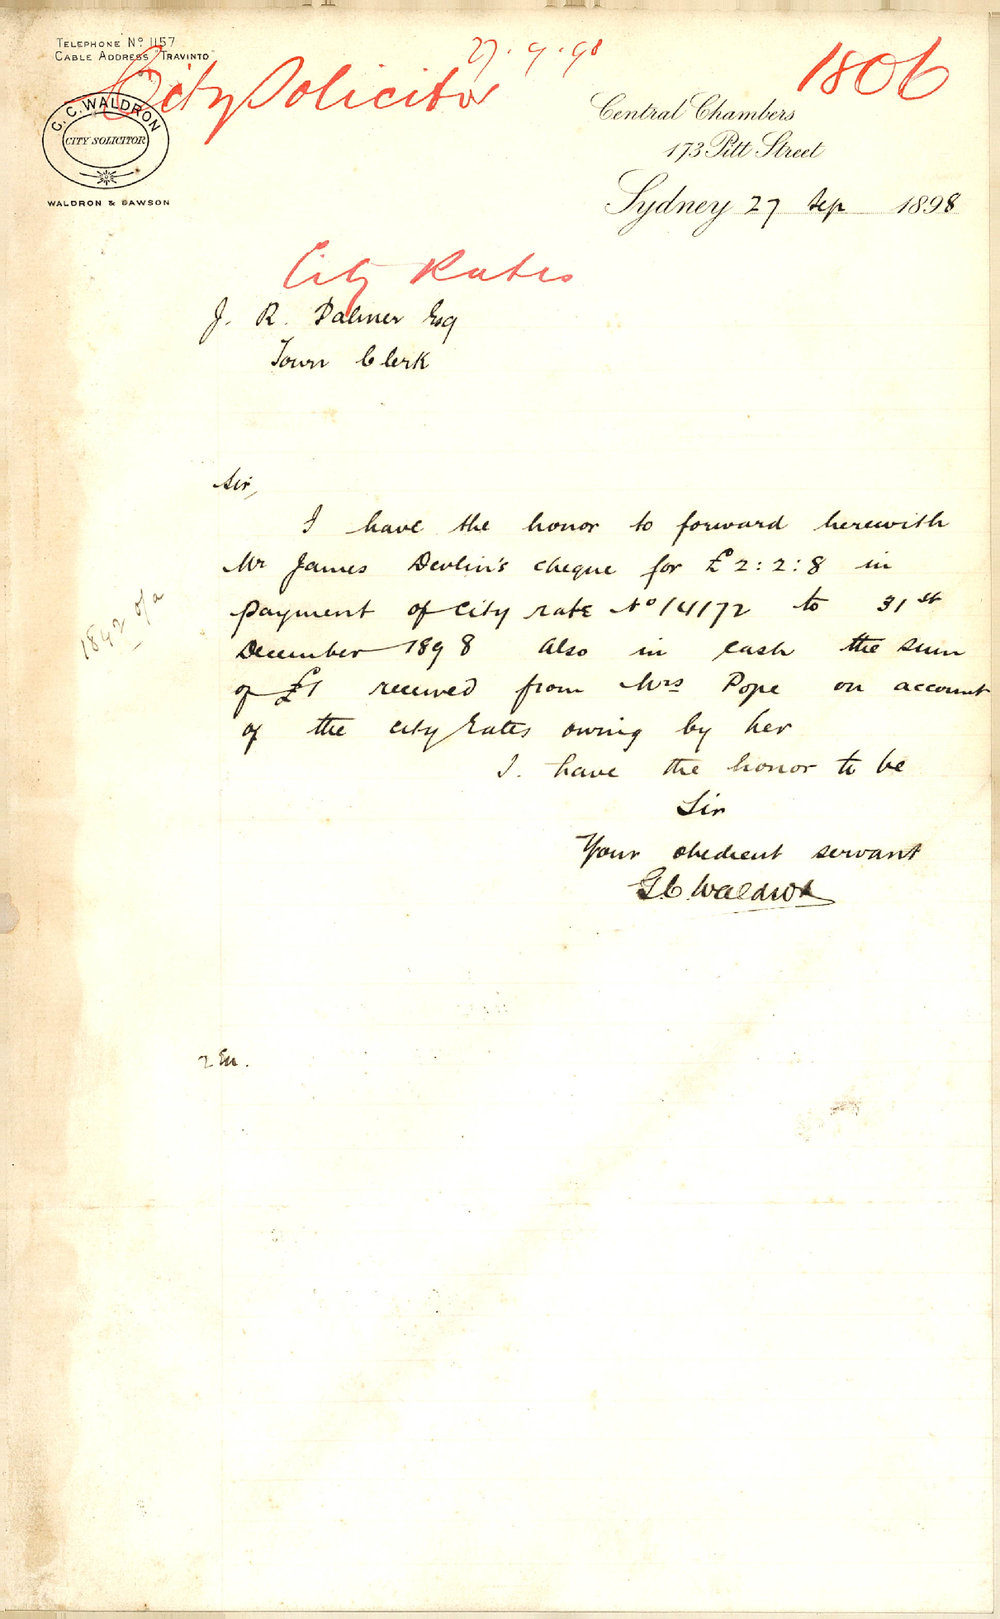 TELEPHONE No 1157
CABLE ADDRESS "TRAVINTO"
City Solicitor
27.9.98
1806
G. C. WALDRON
CITY SOLICITOR
WALDRON & DAWSON
Central Chambers
173 Pitt Street
Sydney 27 Sep 1898
City Rates
J. R. Palmer Esq
Town Clerk
Sir,
I have the honor to forward herewith
Mr James Devlin's cheque for £2:2:8 in
payment of City rate No 14172 to 31st
December 1898 Also in cash the sum
of £1 received from Mrs Pope on account
of the city rates owing by her
I. have the honor to be
Sir
Your obedient servant
G C Waldron
1842 of a
2 En.